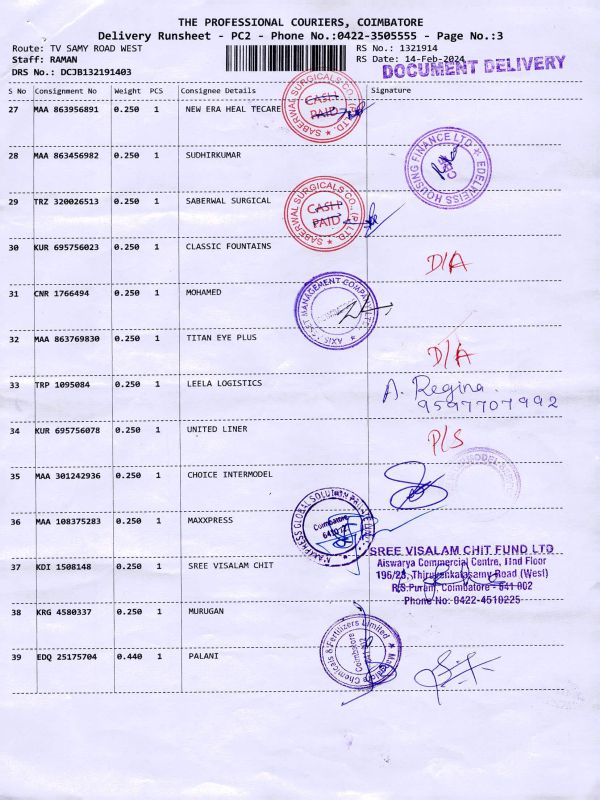 THE PROFESSIONAL COURIERS, COIMBATORE
Delivery Runsheet - PC2 - Phone No.:0422-3505555 - Page No.:3
Route: TV SAMY ROAD WEST RS No.: 1321914
Staff: RAMAN RS Date: 14-Feb-2024
DRS No.: DCJB132191403 DOCUMENT DELIVERY
S No Consignment No Weight PCS Consignee Details Signature
27 MAA 863956891 0.250 1 NEW ERA HEAL TECARE
SABERWAL SURGICALS CO., (P) LTD.
CASH
PAID
28 MAA 863456982 0.250 1 SUDHIRKUMAR
EDELWEISS HOUSING FINANCE LTD
29 TRZ 320026513 0.250 1 SABERWAL SURGICAL
SABERWAL SURGICALS CO., (P) LTD.
CASH
PAID
30 KUR 695756023 0.250 1 CLASSIC FOUNTAINS
D/A
31 CNR 1766494 0.250 1 MOHAMED
AXIS ASSET MANAGEMENT COMPANY
32 MAA 863769830 0.250 1 TITAN EYE PLUS
D/A
33 TRP 1095084 0.250 1 LEELA LOGISTICS
A. Regina.
9597707992
34 KUR 695756078 0.250 1 UNITED LINER
P/S
35 MAA 301242936 0.250 1 CHOICE INTERMODEL
36 MAA 108375283 0.250 1 MAXXPRESS
MAXXPRESS GLOBAL SOLUTION PRIVATE
Coimbatore
37 KDI 1508148 0.250 1 SREE VISALAM CHIT
SREE VISALAM CHIT FUND LTD
Aiswarya Commercial Centre, IInd Floor
196/23, Thiruvenkatasamy Road (West)
R.S.Puram, Coimbatore - 641 002
Phone No: 0422-4510225
38 KRG 4580337 0.250 1 MURUGAN
Chemicals & Fertilizers Limited
Coimbatore
39 EDQ 25175704 0.440 1 PALANI